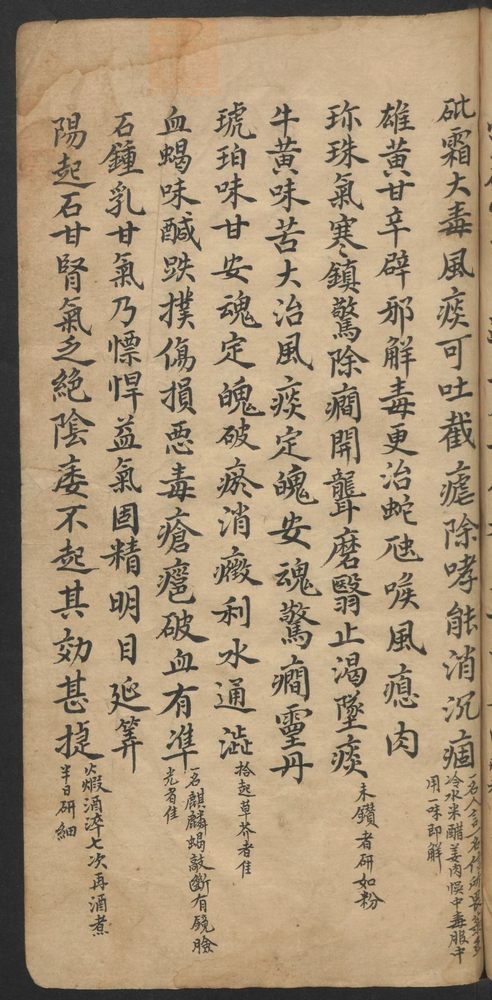 砒霜大毒風痰可吐截瘧除哮能消沉痼
一名人言一名信
冷水米醋姜肉悞中毒服中
用一味即解
雄黃甘辛辟邪解毒更治蛇虺喉風瘜肉
珎珠氣寒鎮驚除癇開聾磨翳止渴墜痰
未鑽者研如粉
牛黃味苦大治風痰定魄安魂驚癇靈丹
琥珀味甘安魂定魄破瘀消癥利水通澁
拾起草芥者佳
血蝎味醎跌撲傷損惡毒瘡癰破血有準
一名麒麟蝎敲斷有鏡臉
光者佳
石鍾乳甘氣乃慓悍益氣固精明目延筭
陽起石甘腎氣乏絕陰痿不起其効甚捷
火煅酒淬七次再酒煮
半日研細